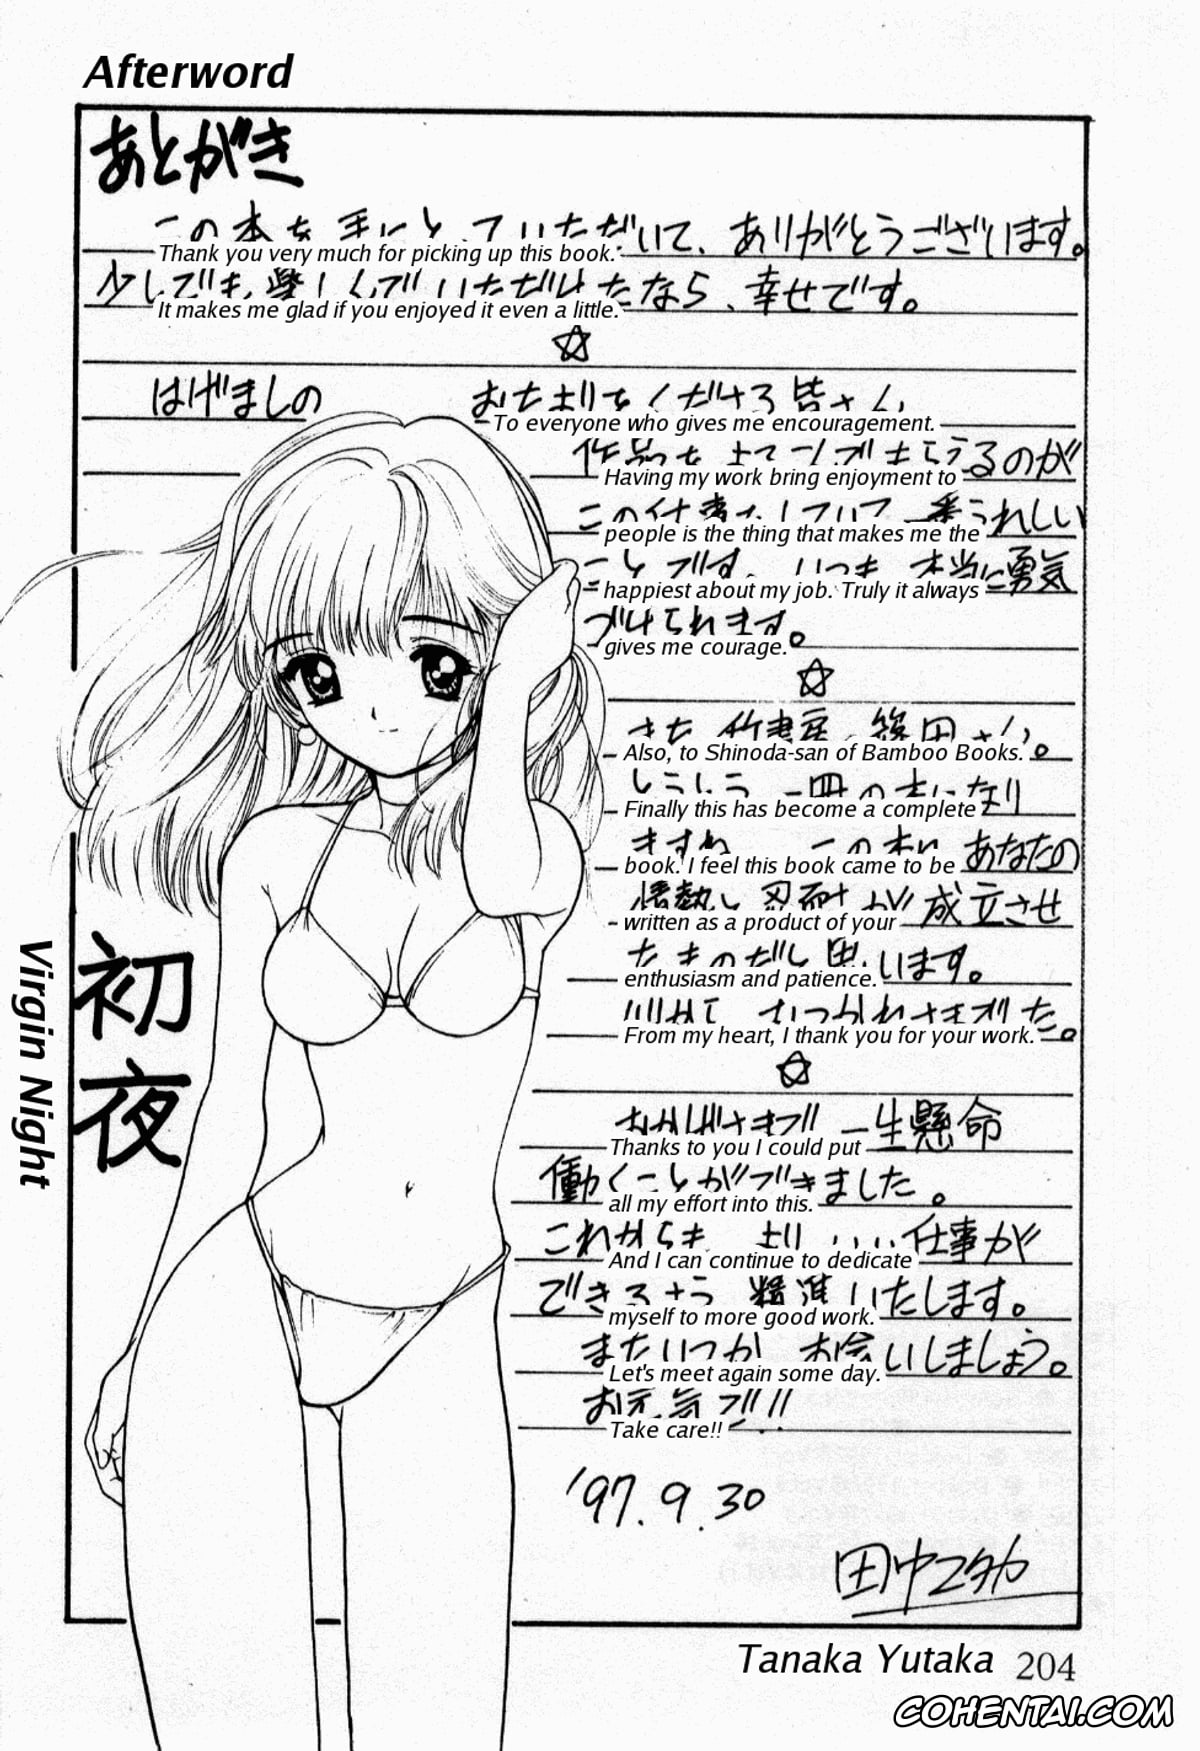 Afterword
あとがき
ありがとうございます。
Thank you very much for picking up this book.
なら、幸せです。
It makes me glad if you enjoyed it even a little.
はげましの おたよりをくださる皆さん
To everyone who gives me encouragement.
Having my work bring enjoyment to
うれしい
people is the thing that makes me the
勇気
happiest about my job. Truly it always
づけられます。
gives me courage.
Also, to Shinoda-san of Bamboo Books.
Finally this has become a complete
あなたの
book. I feel this book came to be
成立させ
written as a product of your
います。
enthusiasm and patience.
From my heart, I thank you for your work.
おかげさまで 一生懸命
Thanks to you I could put
働くことができました。
all my effort into this.
これからも よりいい仕事が
And I can continue to dedicate
できるよう 精進いたします。
myself to more good work.
またいつか お会いしましょう。
Let's meet again some day.
お元気で!!
Take care!!
'97.9.30
田中ユタカ
初夜
Virgin Night
Tanaka Yutaka 204
COHENTAI.COM